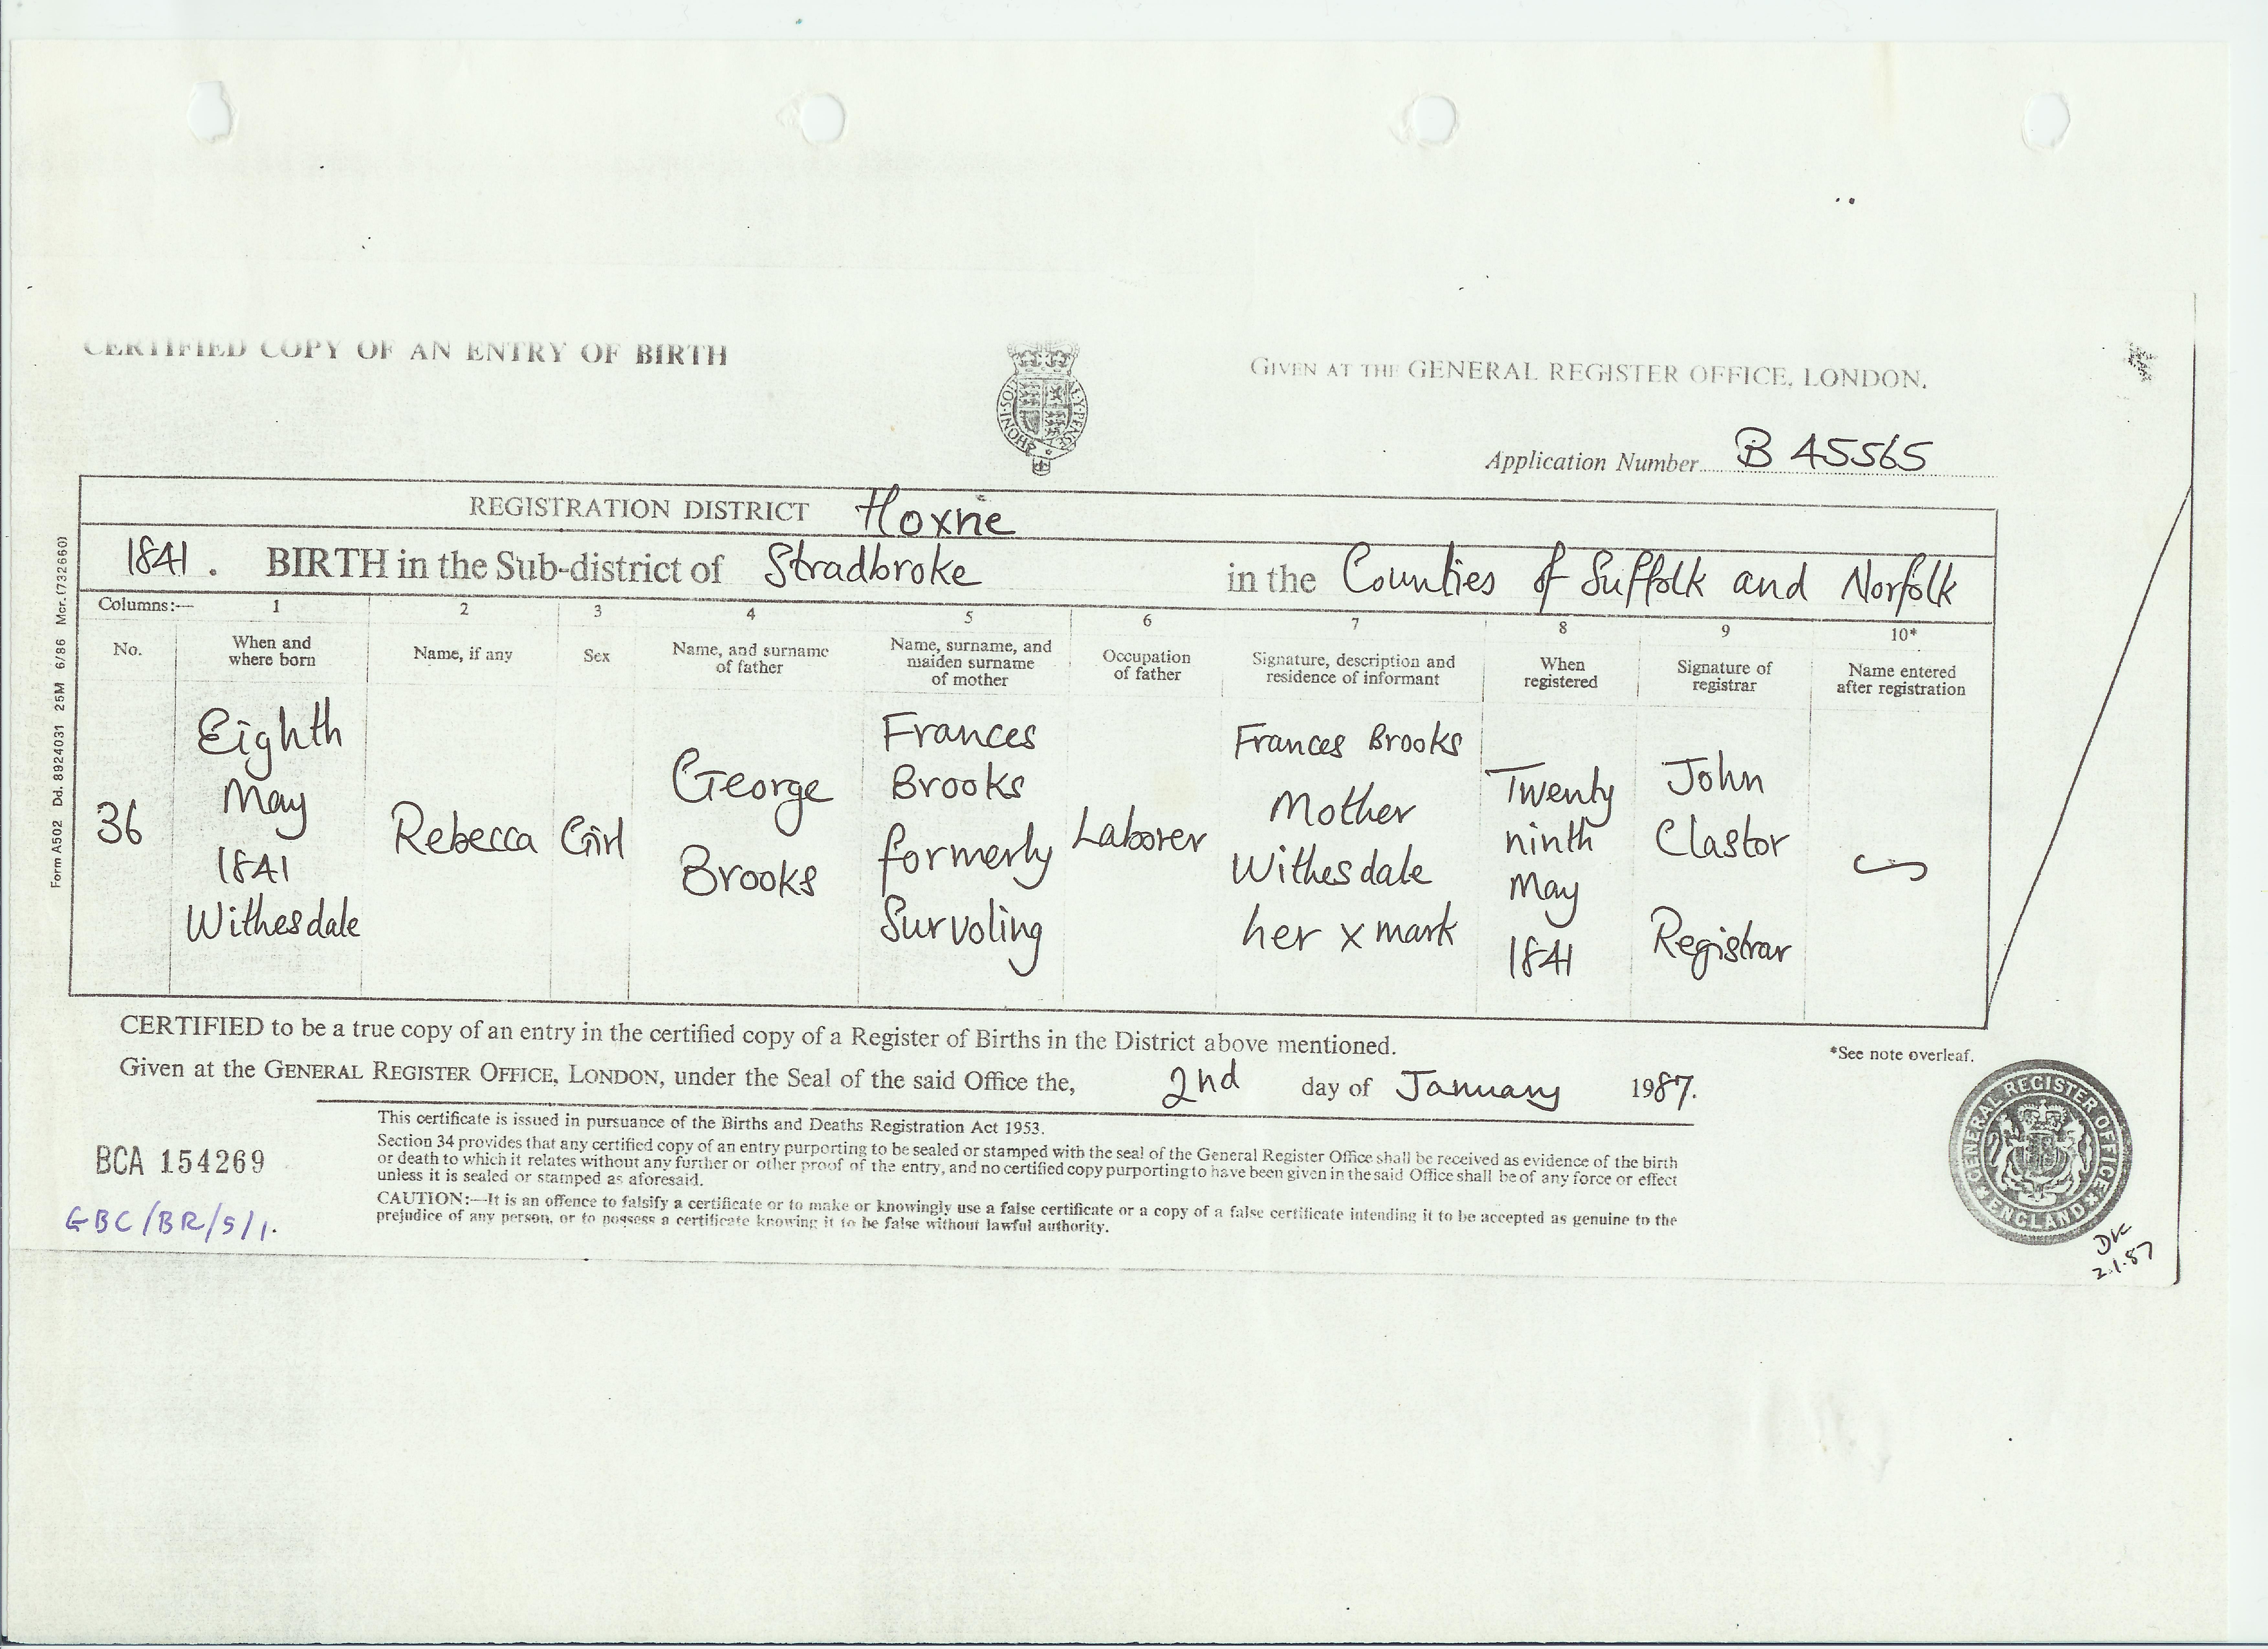 CERTIFIED COPY OF AN ENTRY OF BIRTH
GIVEN AT THE GENERAL REGISTER OFFICE, LONDON.
Application Number B 45565
REGISTRATION DISTRICT Hoxne
1841. BIRTH in the Sub-district of Stradbroke in the Counties of Suffolk and Norfolk
Columns:— 1 2 3 4 5 6 7 8 9 10*
No.
When and
where born
Name, if any
Sex
Name, and surname
of father
Name, surname, and
maiden surname
of mother
Occupation
of father
Signature, description and
residence of informant
When
registered
Signature of
registrar
Name entered
after registration
36
Eighth
May
1841
Withesdale
Rebecca
Girl
George
Brooks
Frances
Brooks
formerly
Survoling
Laborer
Frances Brooks
Mother
Withesdale
her x mark
Twenty
ninth
May
1841
John
Clastor
Registrar
CERTIFIED to be a true copy of an entry in the certified copy of a Register of Births in the District above mentioned.
*See note overleaf.
Given at the GENERAL REGISTER OFFICE, LONDON, under the Seal of the said Office the, 2nd day of January 1987.
This certificate is issued in pursuance of the Births and Deaths Registration Act 1953.
Section 34 provides that any certified copy of an entry purporting to be sealed or stamped with the seal of the General Register Office shall be received as evidence of the birth
or death to which it relates without any further or other proof of the entry, and no certified copy purporting to have been given in the said Office shall be of any force or effect
unless it is sealed or stamped as aforesaid.
CAUTION:—It is an offence to falsify a certificate or to make or knowingly use a false certificate or a copy of a false certificate intending it to be accepted as genuine to the
prejudice of any person, or to possess a certificate knowing it to be false without lawful authority.
BCA 154269
GBC/BR/5/1.
GENERAL REGISTER OFFICE
ENGLAND
DK
2.1.87
Form A502 Dd. 8924031 25M 6/86 Mcr. (732660)